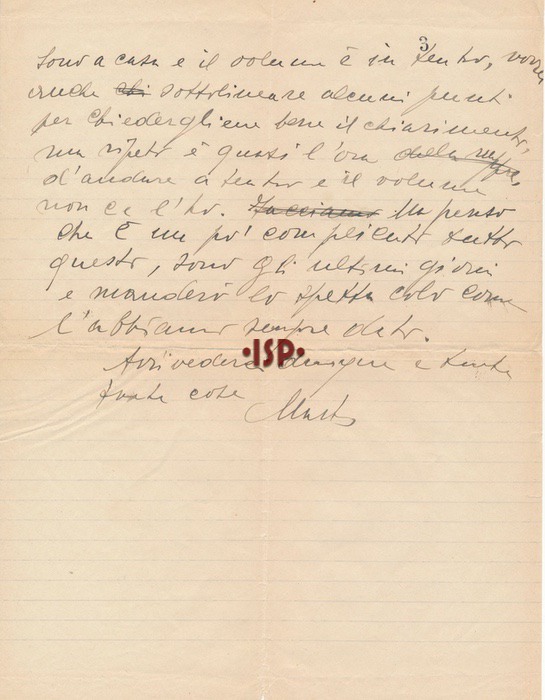 3
sono a casa e il volume è in teatro, vorrei
anche chi sottolineare alcuni punti
per chiedergliene bene il chiarimento,
ma ripeto è quasi l'ora della
d'andare a teatro e il volume
non ce l'ho. Facciamo Ma penso
che È un po' complicato tutto
questo, sono gli ultimi giorni
e manderò lo spettacolo come
l'abbiamo sempre dato.
·ISP·
Arrivederci dunque e tante
tante cose